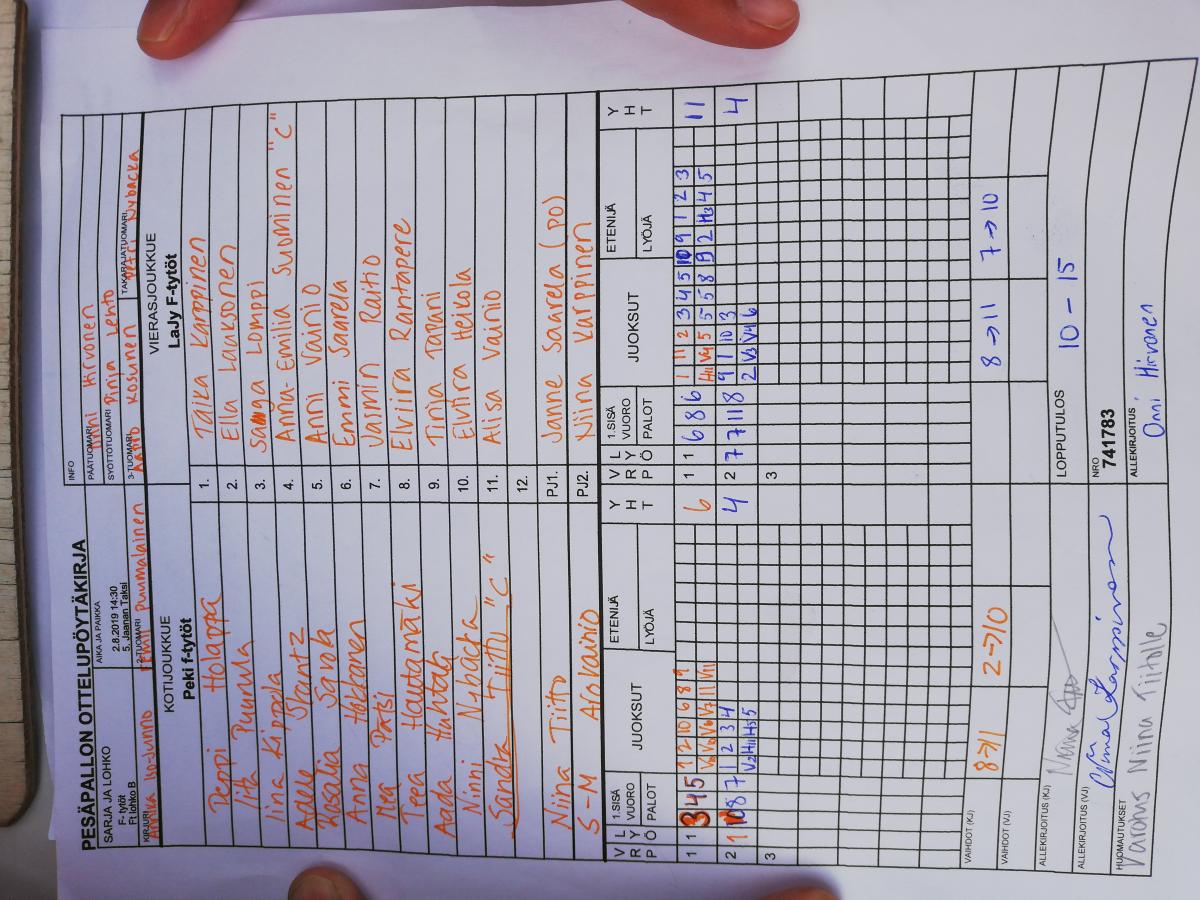 PESÄPALLON OTTELUPÖYTÄKIRJA
SARJA JA LOHKO
F-tytöt
Ft lohko B
AIKA JA PAIKKA
2.8.2019 14:30
5. Jaanan Taksi
INFO
PÄÄTUOMARI
Hirvonen
SYÖTTÖTUOMARI Pinja Lehto
KIRJURI
Annika Iso-Junno
2-TUOMARI
Puumalainen
3-TUOMARI
Aapro Kosunen
TAKARAJATUOMARI
Petri Nybacka
KOTIJOUKKUE
Peki f-tytöt
VIERASJOUKKUE
LaJy F-tytöt
Peppi Holappa
1. Taika Karppinen
Iita Puurula
2. Ella Lauksonen
Iina Kippola
3. Lomppi
Adele Sprantz
4. Anna-Emilia Suominen "C"
Rosalia
5. Anni Vainio
Anna Hokkanen
6. Emmi Saarela
Mea Pätsi
7. Jasmin Raitio
Teea Hautamäki
8. Elviira Rantapere
Aada Huhtala
9. Tinja Tapani
Ninni Nybacka
10. Elviira Heikola
Sandra Tiittu "C"
11. Alisa Vainio
12.
Niina Tiitto
PJ1. Janne Saarela (PO)
S-M Arovainio
PJ2. Niina Karppinen
V R P L Y Ö 1.SISÄ VUORO PALOT JUOKSUT ETENIJÄ LYÖJÄ Y H T
V R P L Y Ö 1.SISÄ VUORO PALOT JUOKSUT ETENIJÄ LYÖJÄ Y H T
1 1 3 4 5 1 2 10 6 8 9 6
1 1 6 8 6 1 11 2 3 4 5 10 9 1 2 3 11
H11 V4 5 5 5 8 9 2 H3 4 5
2 1 8 7 1 2 3 4 4
V2 H11 H5 5
2 7 7 11 8 9 1 10 3 4
2 V3 V4 6
3
3
VAIHDOT (KJ) 8→11 2→10 8→11 7→10
VAIHDOT (VJ)
ALLEKIRJOITUS (KJ)
LOPPUTULOS
10 - 15
ALLEKIRJOITUS (VJ)
NRO
741783
HUOMAUTUKSET
Varoitus Niina Tiitolle
ALLEKIRJOITUS
Onni Hirvonen